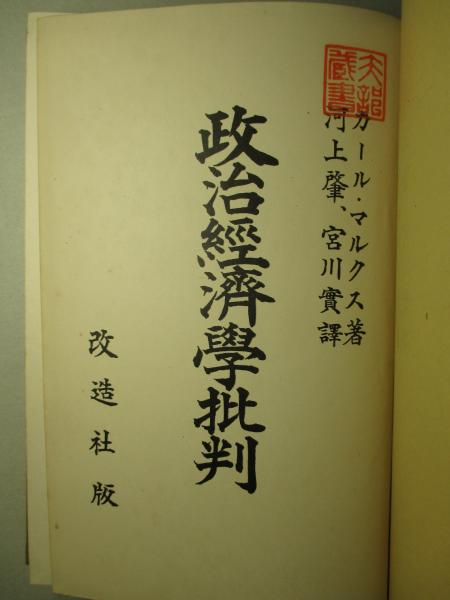 カール・マルクス著
河上肇、宮川實譯
政治經濟學批判
改造社版